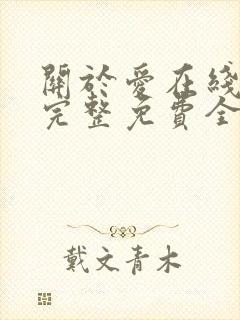 關於愛在綫
完整免費全
戴文青木